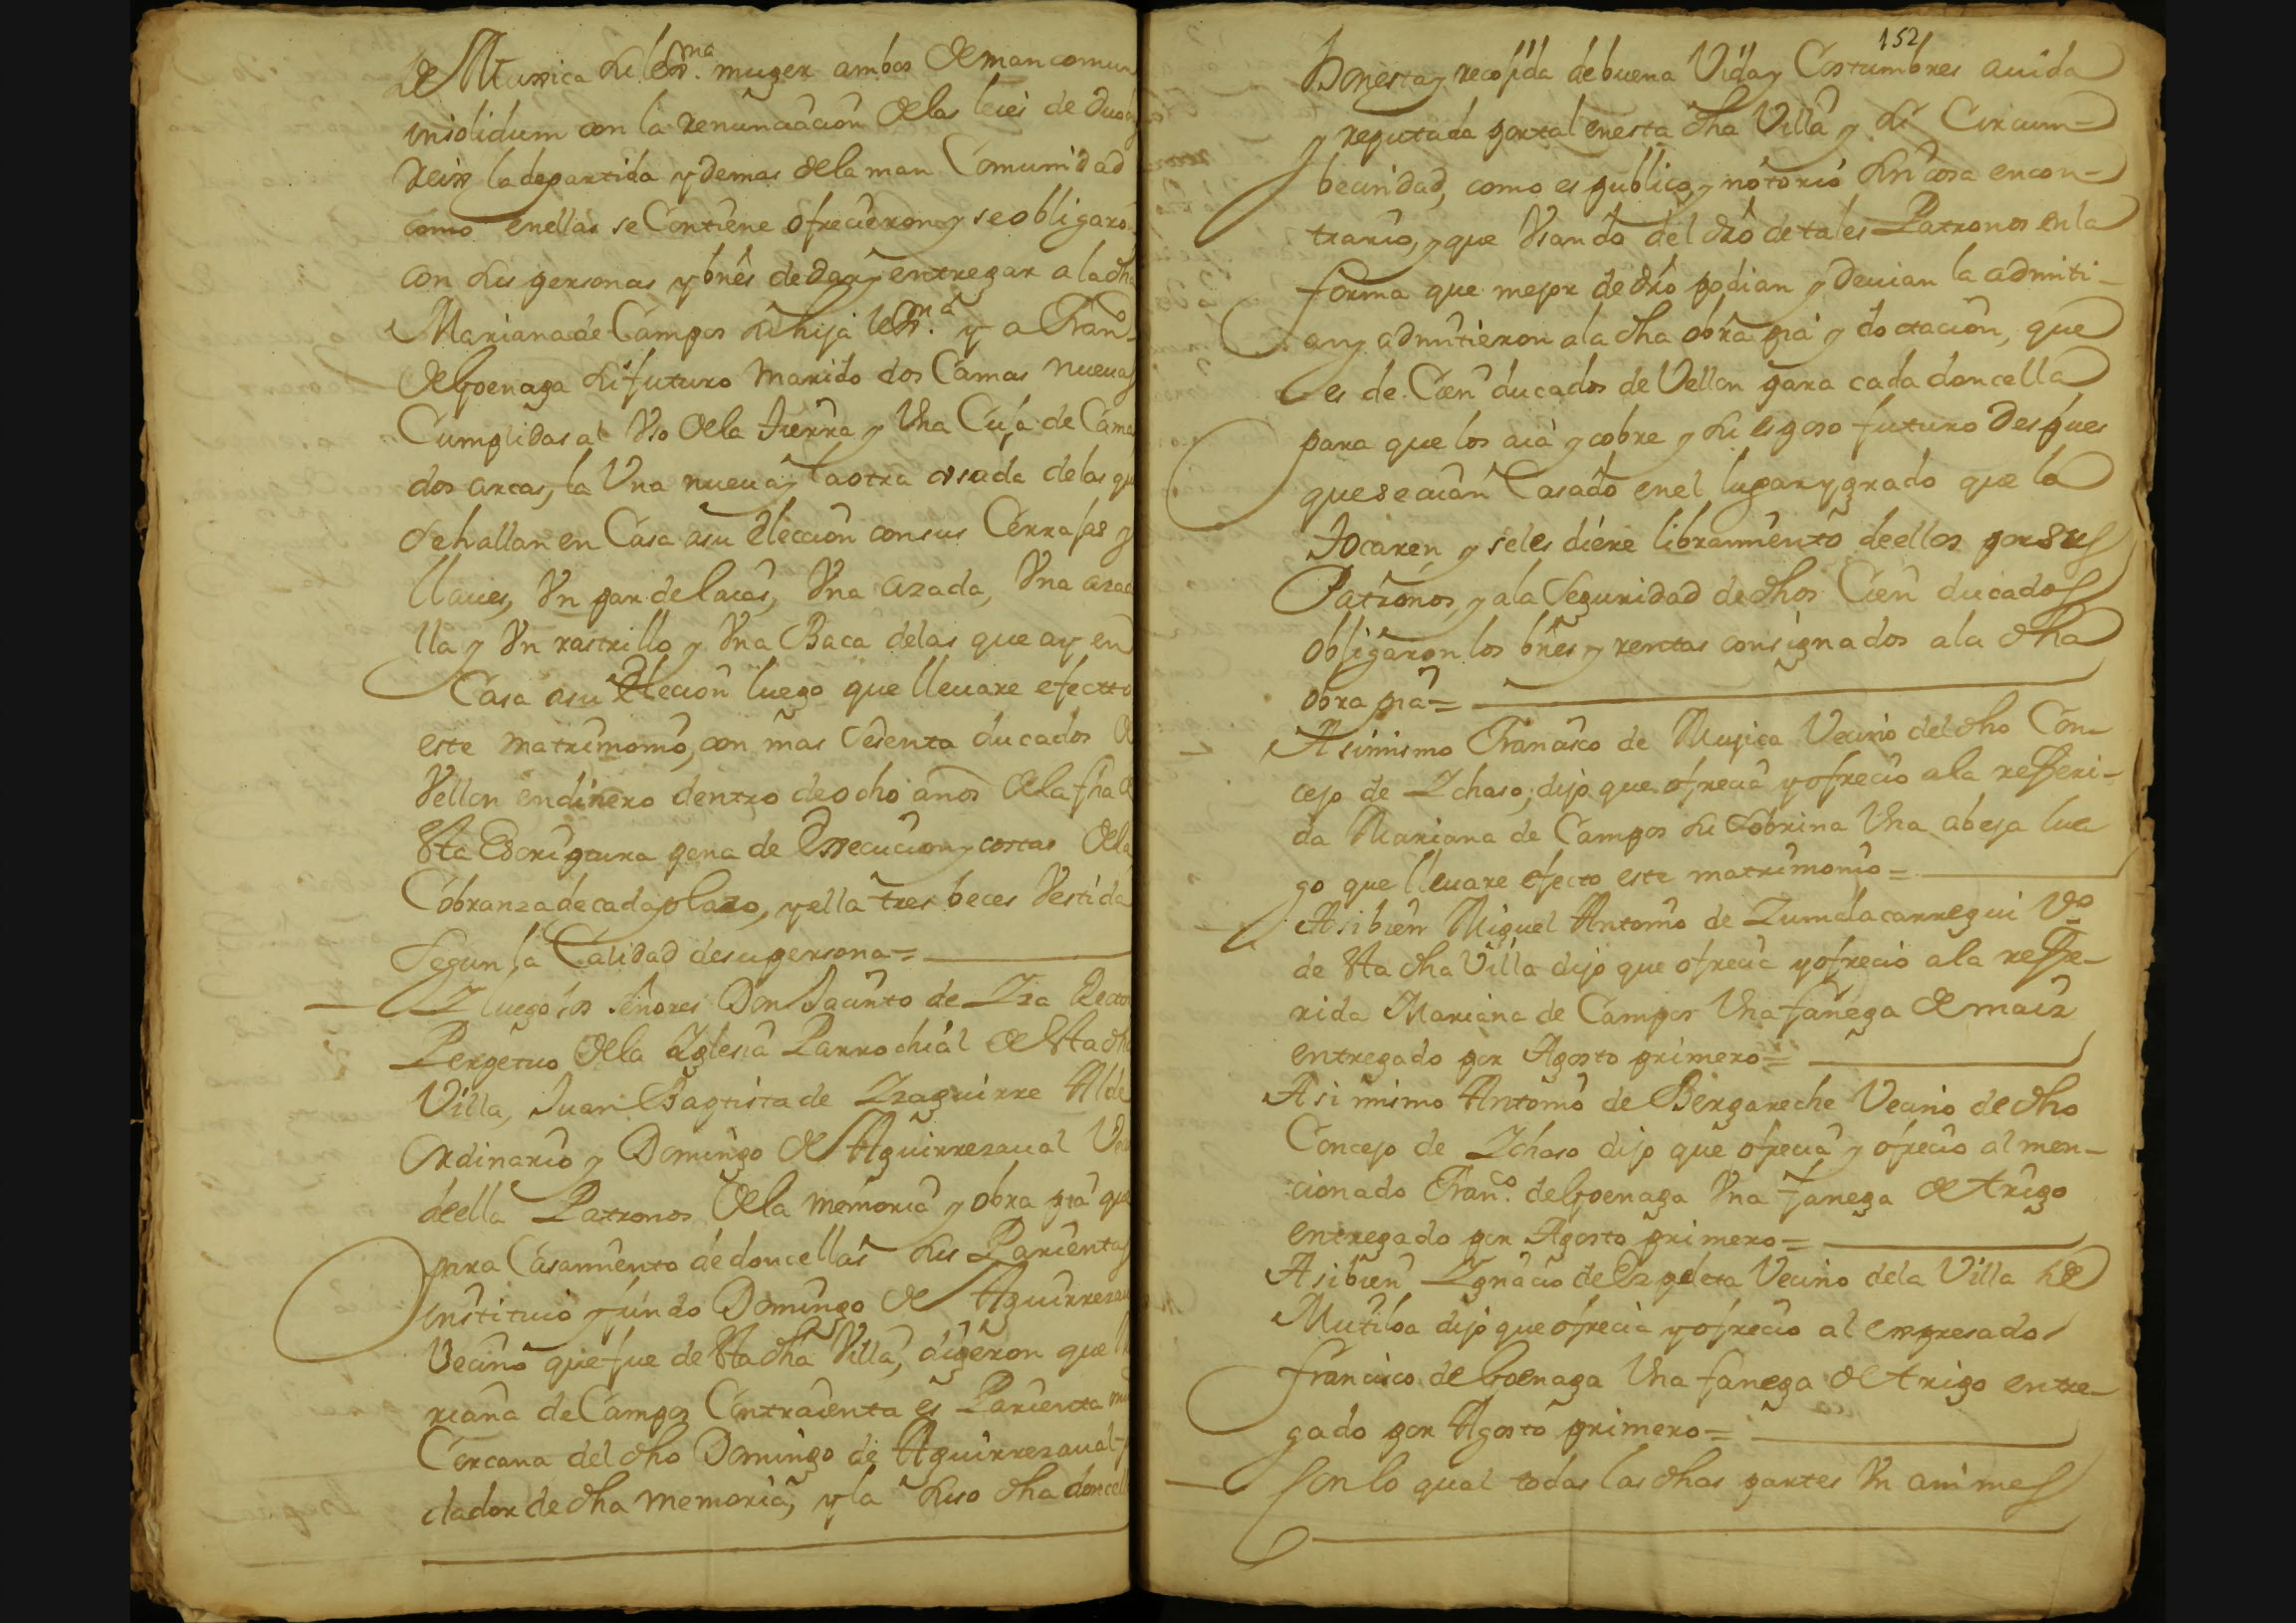 de Munica su lexma. muger ambos de mancomun
insolidum con la renunciacion de las leies de duobus
reis la departida y demas de la man Comunidad
como en ellas se Contiene ofrecieron y se obligaron
con sus personas y bnes de dar y entregar a la dha
Mariana de Campos su hija lexma. y a Frano.
de Goenaga su futuro marido dos Camas nuevas
Cumplidas al Vso de la tierra y Una Cuja de Cama
dos arcas, la Una nueua y la otra vsada de las que
se hallan en Casa a su eleccion con sus Cerrajas y
llaues, Vn par de laias, Vna azada, Vna azadi
lla y Vn rastrillo y Vna Baca de las que ay en
Casa a su eleccion luego que lleuare efectto
este matrimonio, con mas sesenta ducados de
Vellon en dinero dentro de ocho años de la fha de
esta Escriptura pena de Execucion y costas de la
Cobranza de cada plazo, y ella tres beces Vestida
segun la Calidad de su persona =
Y luego los señores Don Jacinto de Iza Rector
Perpetuo de la Iglesia Parrochial de esta dha
Villa, Juan Baptista de Izaguirre Alde
Ordinario y Domingo de Aguirrezaual Vezo
de ella Patronos de la memoria y obra pia que
para Casamiento de doncellas sus Parientas
instituio y fundo Domingo de Aguirrezaual
Vecino que fue de esta dha Villa, dixeron que
riana de Campos Contraienta es Parienta mui
Cercana del dho Domingo de Aguirrezaual
dador de dha memoria, y la suso dha doncella
152
Honesta y recojida de buena Vida y Costumbres auida
y reputada por tal en esta dha Villa y su Circum-
becindad, como es publico y notorio sin cosa en con-
trario, y que Vsando del dro de tales Patronos en la
forma que mejor de dro podian y deuian la admiti-
an y admitieron a la dha obra pia y doctacion, que
es de Cien ducados de Vellon para cada doncella
para que los aia y cobre y su esposo futuro despues
que se aian Casado en el lugar y grado que la
tocaren y seles diere libramiento de ellos por sus
Patronos, y a la seguridad de dhos Cien ducados
obligaron los bnes y renttas consignados a la dha
obra pia =
Asimismo Francisco de Mujica Vecino del dho Con-
cejo de Ichaso, dijo que ofrecia y ofrecio a la referi-
da Mariana de Campos su sobrina Una abeja lue
go que lleuare efecto este matrimonio =
Asi bien Miguel Antonio de Zumalacarregui Vo.
de esta dha Villa dijo que ofrecia y ofrecio a la refe-
rida Mariana de Campos Una fanega de maiz
entregado por Agosto primero =
Asi mismo Antonio de Bergareche Vecino de dho
Concejo de Ichaso dijo que ofrecia y ofrecio al men-
cionado Frano. de Goenaga Vna fanega de trigo
entregado por Agosto primero =
Asi bien Ignacio de Ezpeleta Vecino de la Villa de
Mutiloa dijo que ofrecia y ofrecio al expresado
Francisco de Goenaga Una fanega de trigo entre-
gado por Agosto primero =
Con lo qual todas las dhas partes Vn animes